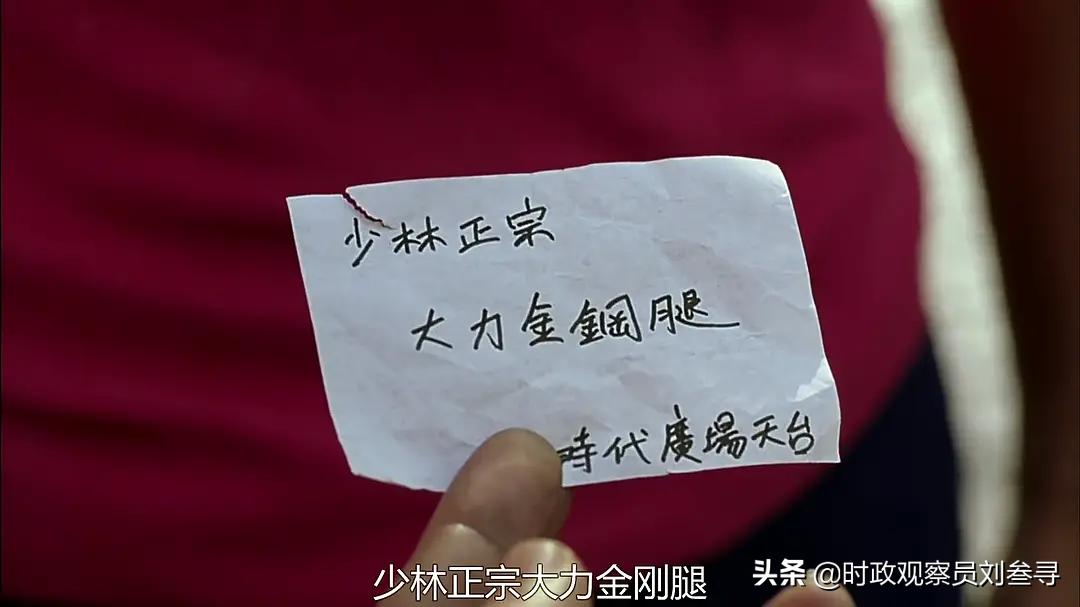 少林正宗
大力金鋼腿
時代廣場天台
少林正宗大力金刚腿
头条 @时政观察员刘叁寻